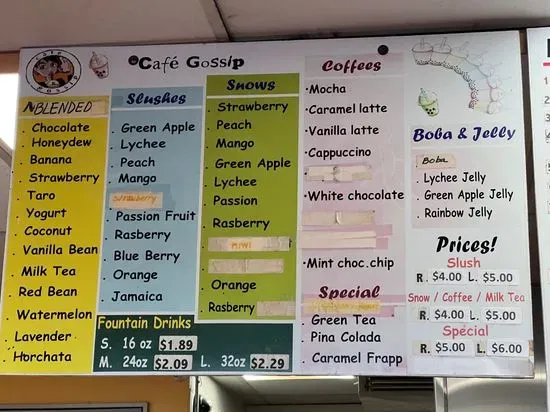 Café Gossip
BLENDED
Chocolate
Honeydew
Banana
Strawberry
Taro
Yogurt
Coconut
Vanilla Bean
Milk Tea
Red Bean
Watermelon
Lavender
Horchata
Slushes
Green Apple
Lychee
Peach
Mango
Strawberry
Passion Fruit
Rasberry
Blue Berry
Orange
Jamaica
Snows
Strawberry
Peach
Mango
Green Apple
Lychee
Passion
Rasberry
KIWI
Orange
Rasberry
Fountain Drinks
S. 16 oz $1.89
M. 24oz $2.09 L. 32oz $2.29
Coffees
Mocha
Caramel latte
Vanilla latte
Cappuccino
White chocolate
Mint choc.chip
Special
Green Tea
Pina Colada
Caramel Frapp
Boba & Jelly
Boba
Lychee Jelly
Green Apple Jelly
Rainbow Jelly
Prices!
Slush
R. $4.00 L. $5.00
Snow / Coffee / Milk Tea
R. $4.00 L. $5.00
Special
R. $5.00 L. $6.00